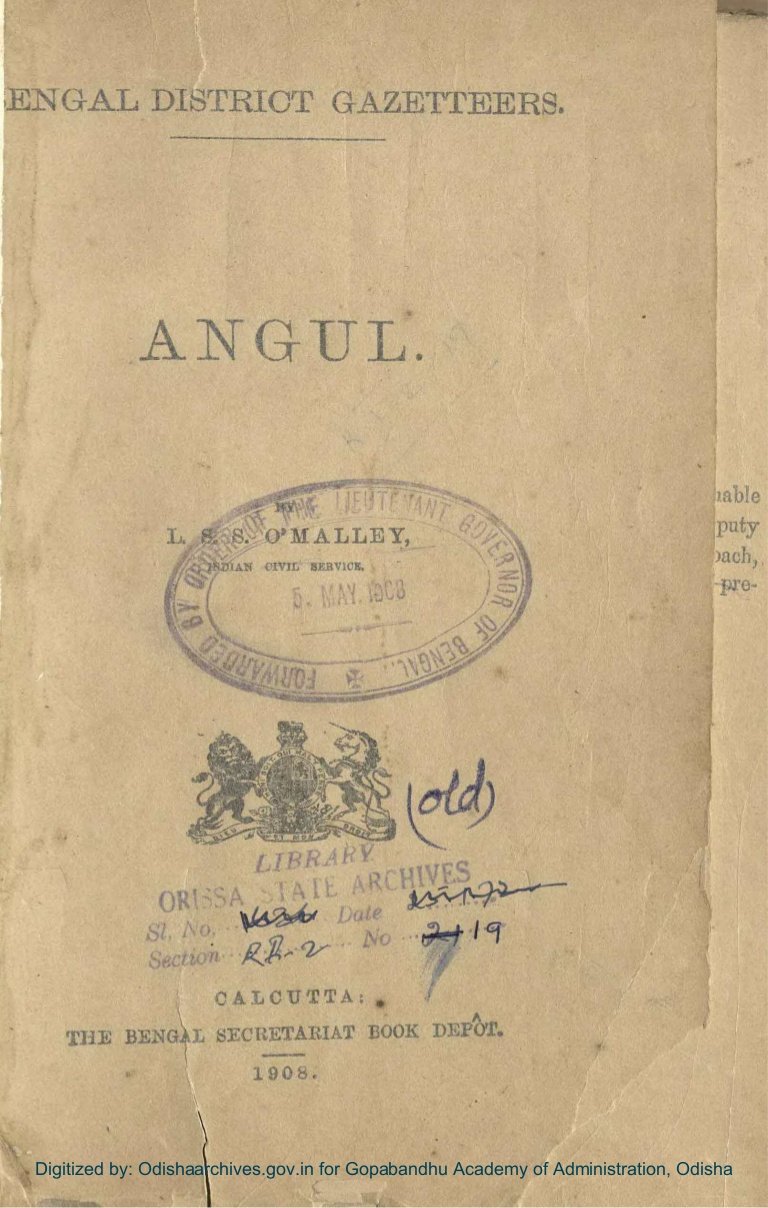 BENGAL DISTRICT GAZETTEERS.
ANGUL.
BY
L. S. S. O'MALLEY,
INDIAN CIVIL SERVICE.
FORWARDED BY ORDER OF THE LIEUTENANT GOVERNOR OF BENGAL.
5. MAY. 1908
(old)
LIBRARY
ORISSA STATE ARCHIVES
Sl. No. Date
Section R.R.-2 No 19
CALCUTTA:
THE BENGAL SECRETARIAT BOOK DEPÔT.
1908.
nable
puty
oach,
pre-
Digitized by: Odishaarchives.gov.in for Gopabandhu Academy of Administration, Odisha